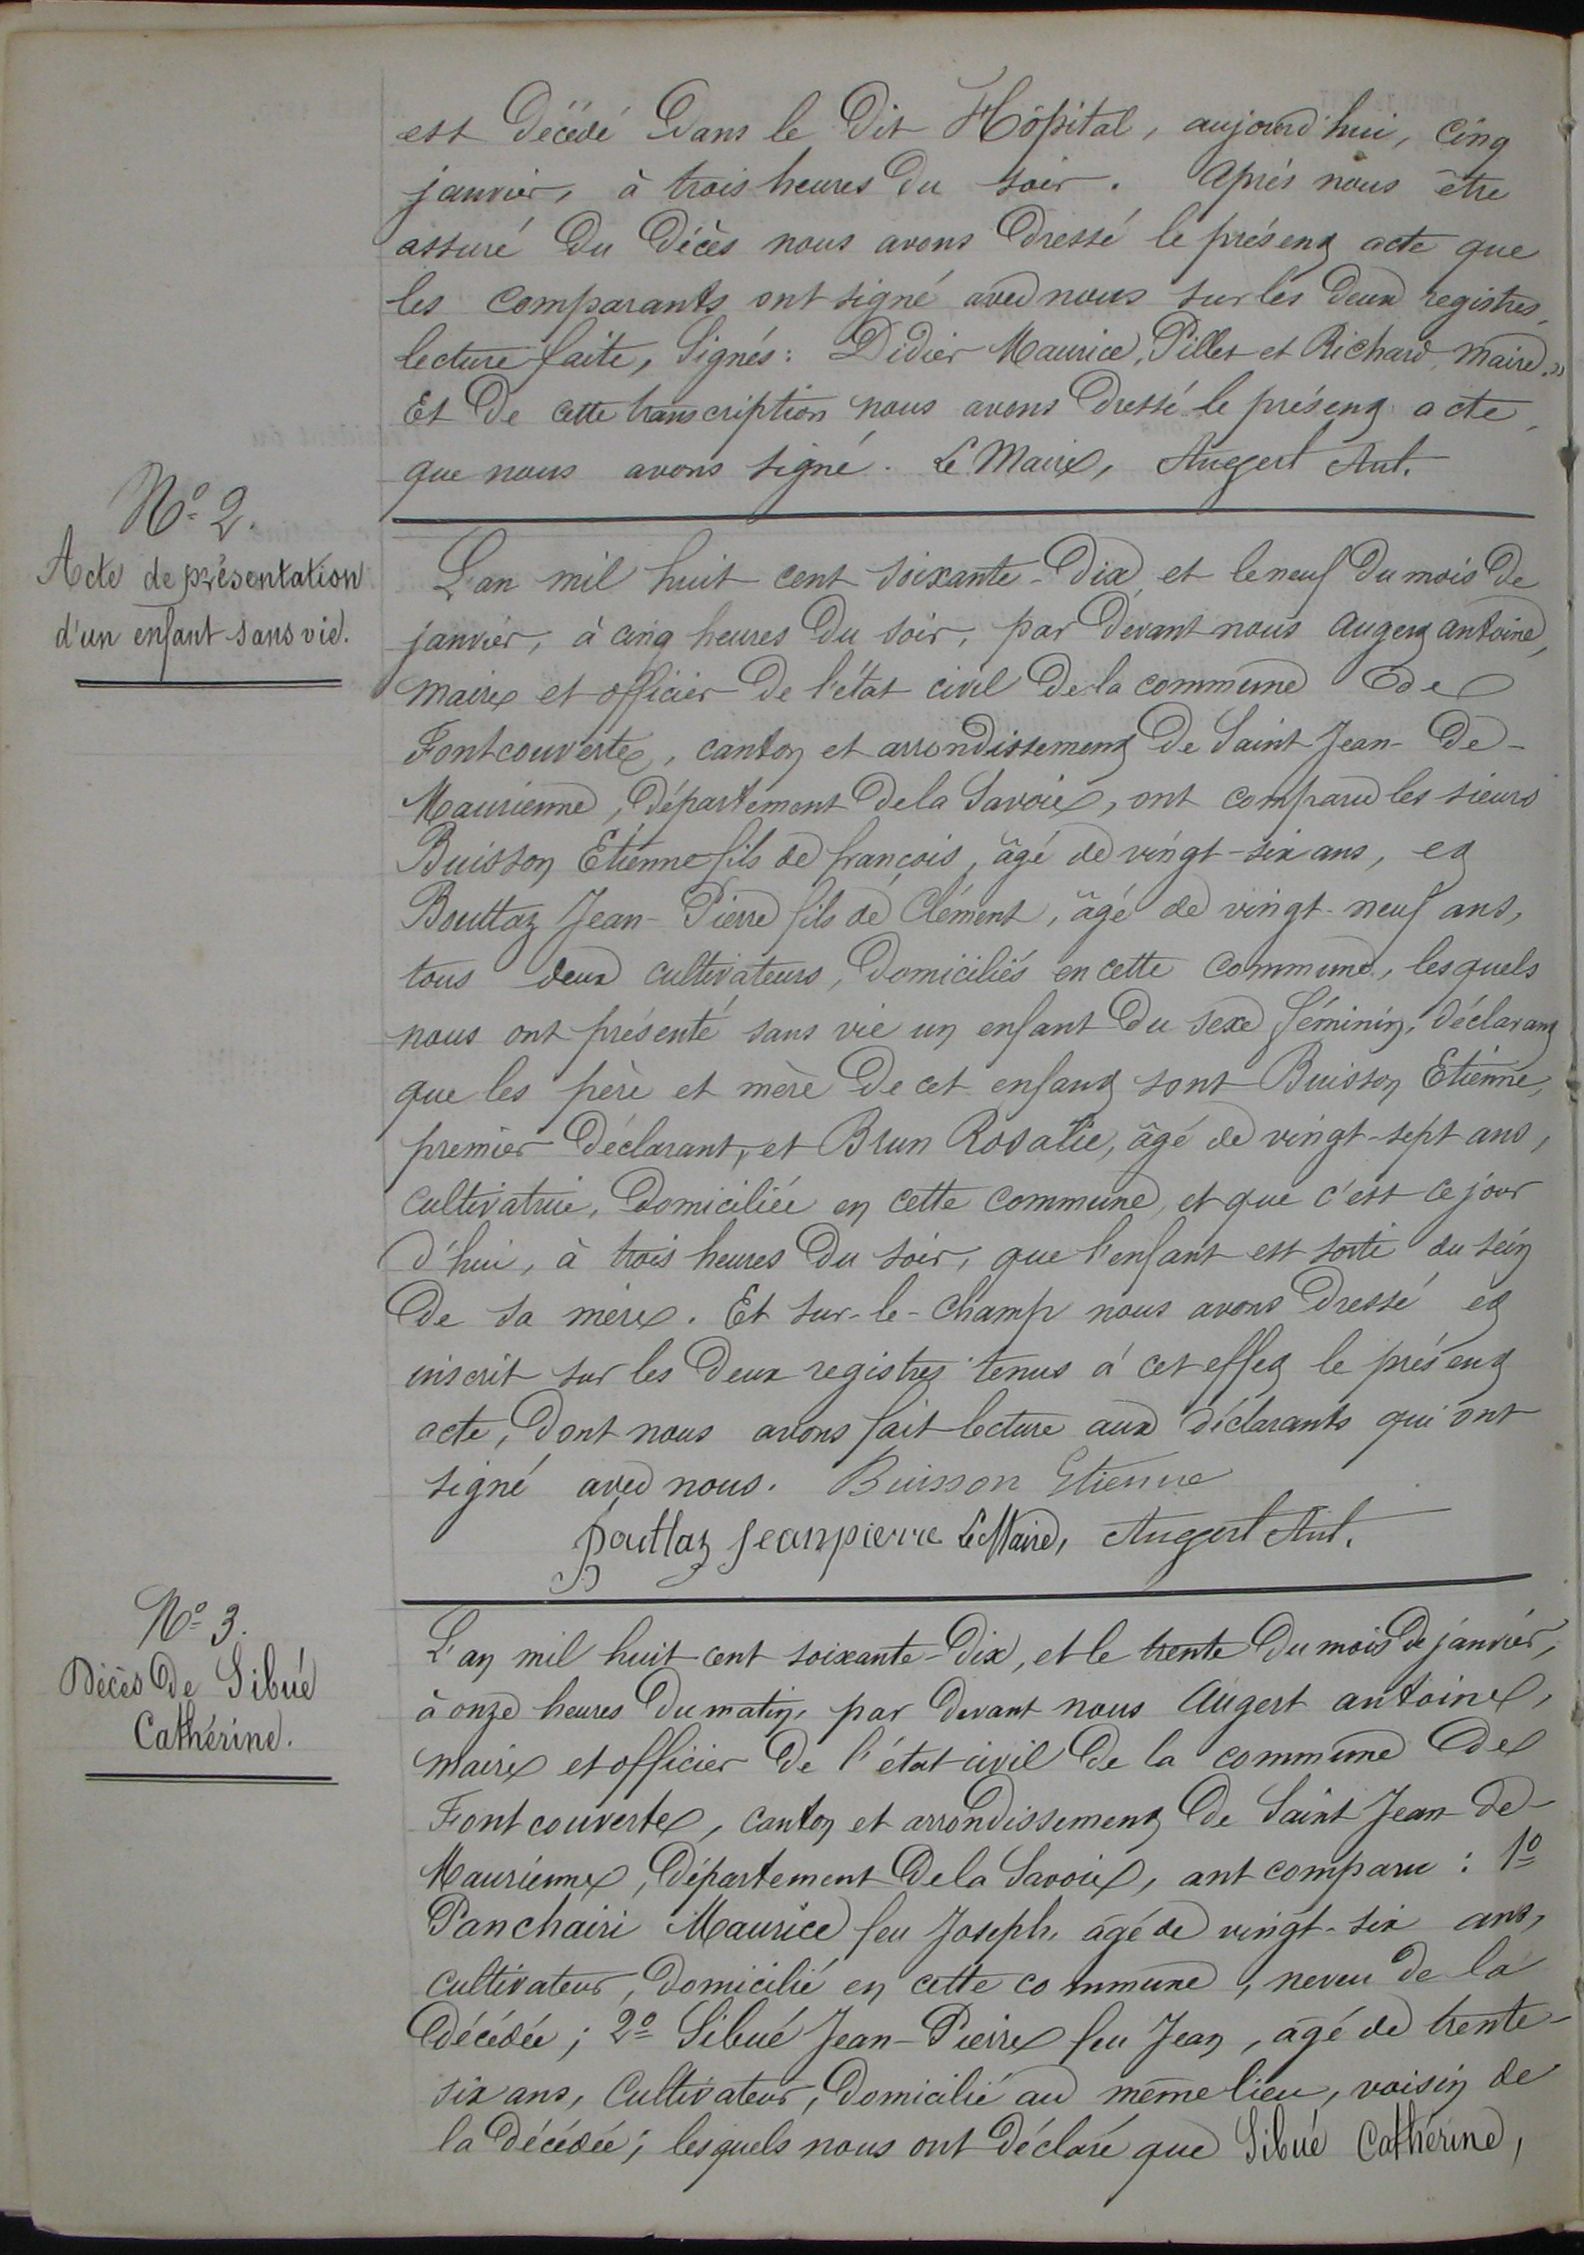 est décédé dans le dit Hôpital, aujourd'hui, cinq
janvier, à trois heures du soir. Après nous être
assuré du décès nous avons dressé le présent acte que
les comparants ont signé avec nous sur les deux registres,
lecture faite, Signés: Didier Maurice, Pillet et Richard, Maire."
Et de cette transcription nous avons dressé le présent acte,
que nous avons signé. Le Maire, Augert Ant.
N° 2.
Acte de présentation
d'un enfant sans vie.
L'an mil huit cent soixante-dix et le neuf du mois de
janvier, à cinq heures du soir, par devant nous Augert antoine,
maire et officier de l'état civil de la commune de
Fontcouverte, canton et arrondissement de Saint-Jean-de-
Maurienne, département de la Savoie, ont comparu les sieurs
Buisson Etienne fils de françois, âgé de vingt-six ans, et
Bouttaz Jean-Pierre fils de Clément, âgé de vingt-neuf ans,
tous deux cultivateurs, domiciliés en cette commune, lesquels
nous ont présenté sans vie un enfant du sexe féminin, déclarant
que les père et mère de cet enfant sont Buisson Etienne,
premier déclarant, et Brun Rosalie, âgé de vingt-sept ans,
cultivatrice, domiciliée en cette commune, et que c'est ce jour
d'hui, à trois heures du soir, que l'enfant est sorti du sein
de sa mère. Et sur-le-champ nous avons dressé et
inscrit sur les deux registres tenus à cet effet le présent
acte, dont nous avons fait lecture aux déclarants qui ont
signé avec nous. Buisson Etienne
Bouttaz Jeanpierre Le Maire, Augert Ant.
N° 3.
Décès de Sibué
Cathérine.
L'an mil huit cent soixante-dix, et le trente du mois de janvier,
à onze heures du matin, par devant nous Augert antoine,
maire et officier de l'état civil de la commune de
Fontcouverte, canton et arrondissement de Saint Jean-de-
Maurienne, département de la Savoie, ont comparu : 1°
Panchairi Maurice feu Joseph, âgé de vingt-six ans,
cultivateur, domicilié en cette commune, neveu de la
décédée; 2° Sibué Jean-Pierre feu Jean, âgé de trente-
six ans, cultivateur, domicilié au même lieu, voisin de
la décédée; lesquels nous ont déclaré que Sibué Cathérine,